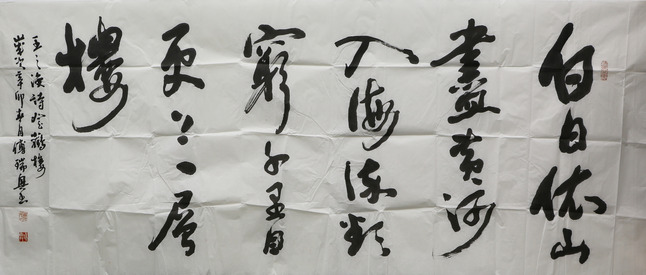 白日依山
盡黄河
入海流欲
窮千里目
更上一層
樓
王之渙詩登鸛樓
歲次辛卯 月傅瑞興書